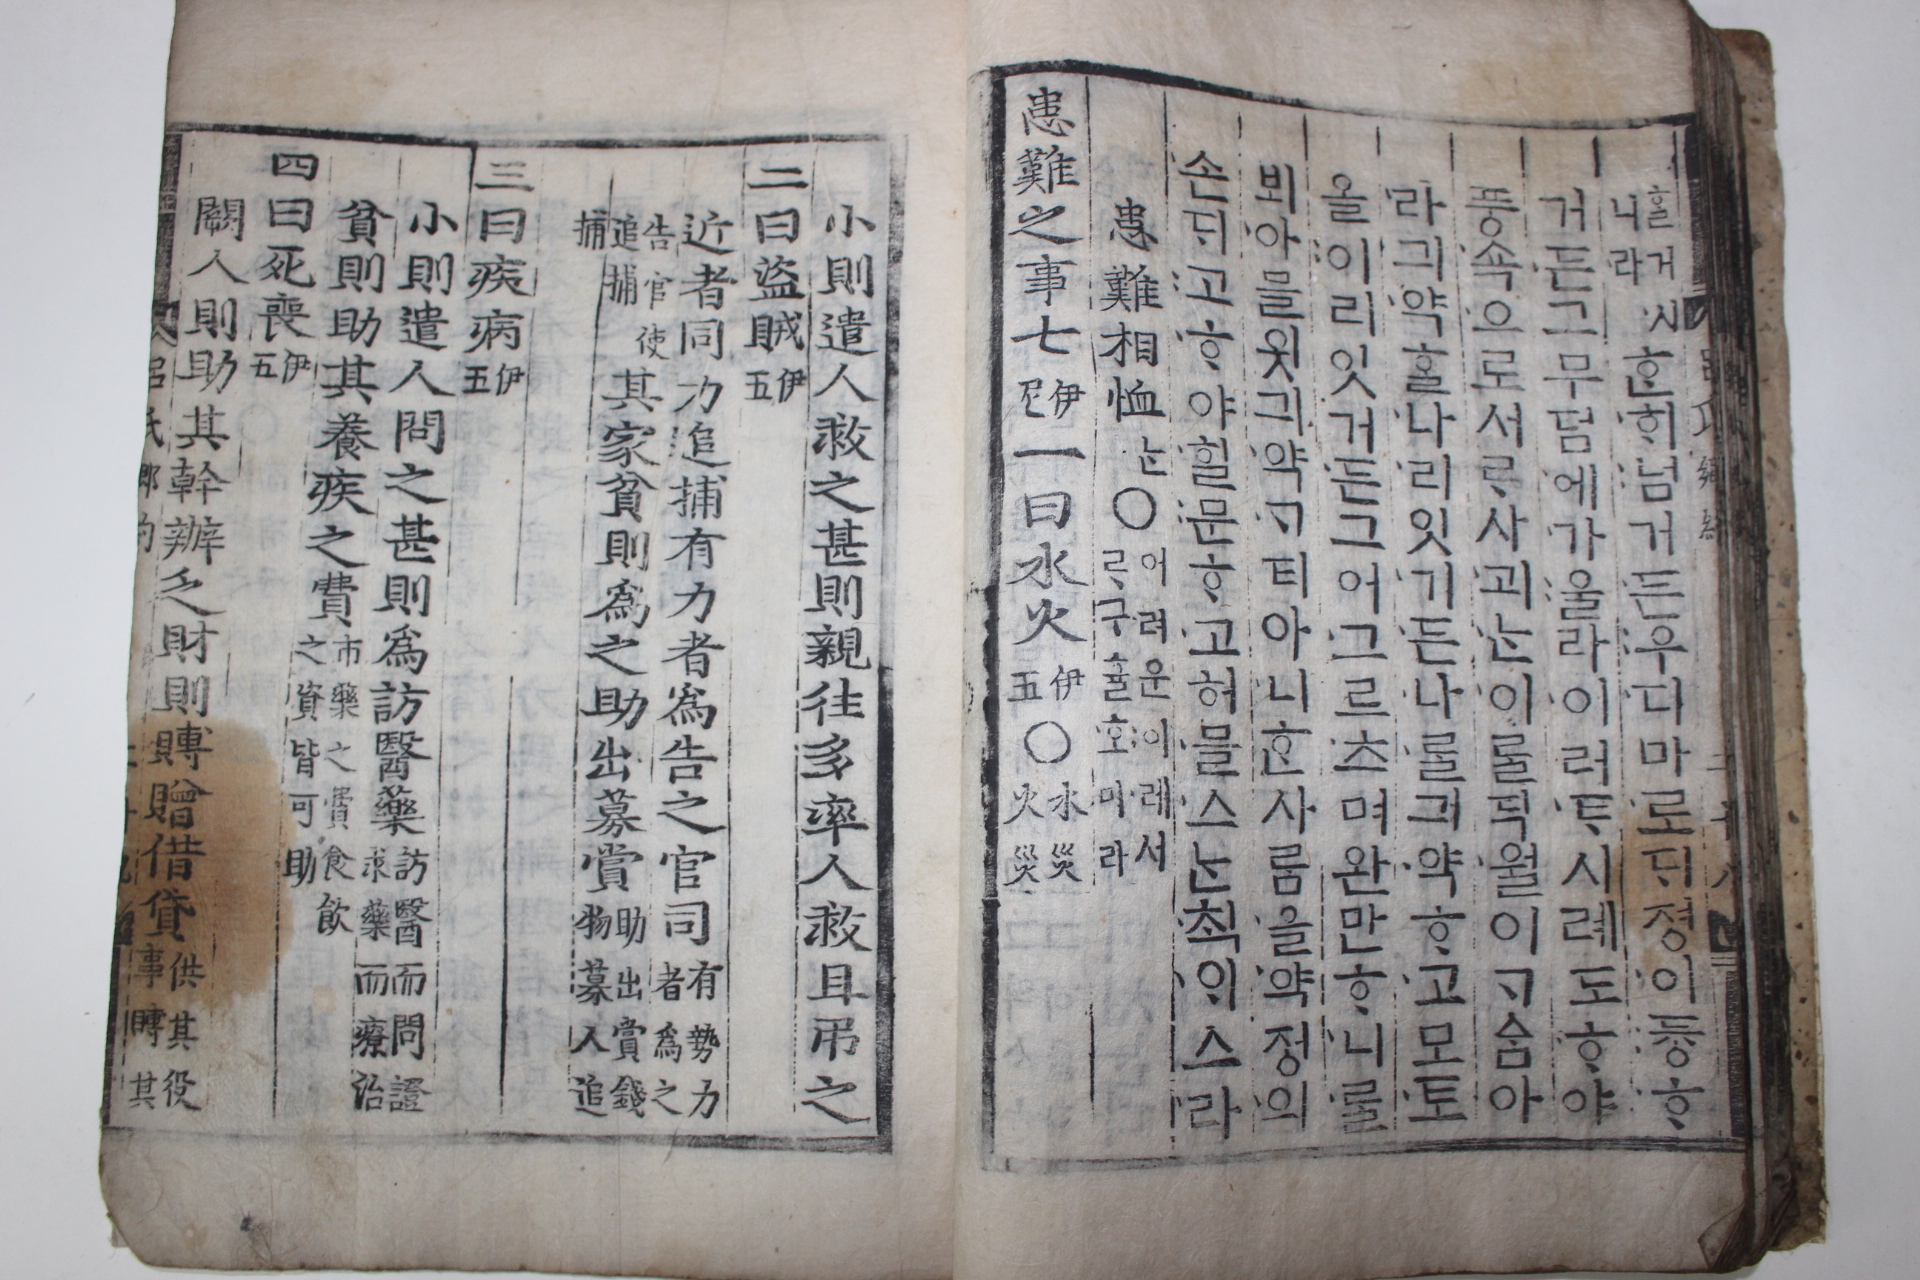 ᄒᆞᆯ거시
니라
ᄒᆞᆫᄒᆡ넘거든우디마로ᄃᆡ졍이듕ᄒᆞ
거든그무덤에가울라이러ᄐᆞ시례도ᄒᆞ야
풍쇽으로서르사괴ᄂᆞᆫ이ᄅᆞᆯ
라긔약ᄒᆞᆯ나리잇거든나ᄅᆞᆯ긔약ᄒᆞ고모토
올이리잇거든그어그르츠며완만ᄒᆞ니ᄅᆞᆯ
뵈아믈읫긔약ᄀᆞ티아니ᄒᆞᆫ사ᄅᆞᆷ을약졍의
손ᄃᆡ고ᄒᆞ야힐문ᄒᆞ고허믈스ᄂᆞᆫᄎᆡᆨ의스라
患難相恤ᄂᆞᆫ○어려운이레서
르구휼호미라
患難之事七伊尼一曰水火伊五○水災火災
小則遣人救之甚則親往多率人救且弔之
二曰盜賊伊五
近者同力追捕有力者爲告之官司有勢力者爲之
告官使
追捕
其家貧則爲之助出募賞助出賞錢物募人追
捕
三曰疾病伊五
小則遣人問之甚則爲訪醫藥訪醫而問證求藥而療治
貧則助其養疾之費市藥之費食飮之資皆可助
四曰死喪伊五
闕人則助其幹辦乏財則賻贈借貸供其役事賻其
呂氏鄕約